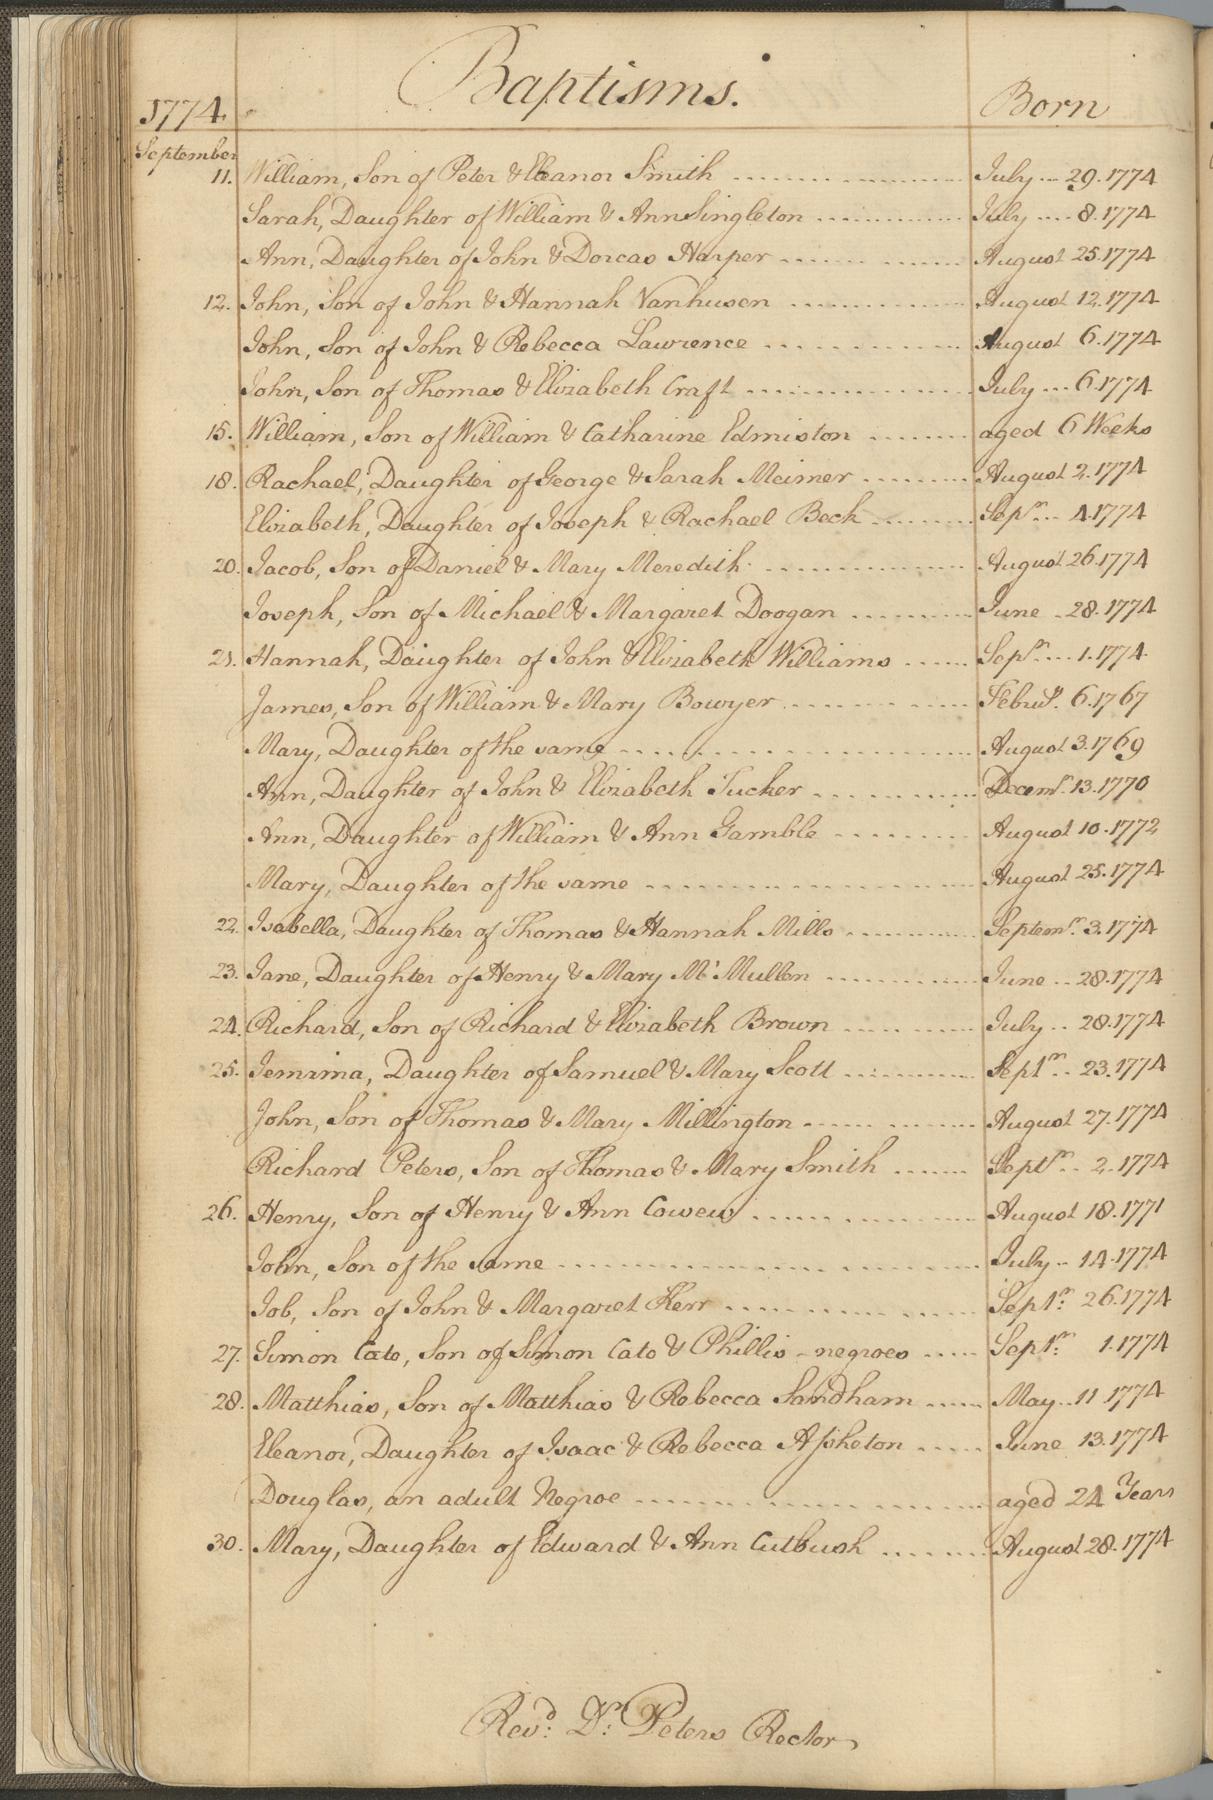 Baptisms.
1774. Born
September
11. William, Son of Peter & Eleanor Smith July 29. 1774
Sarah, Daughter of William & Ann Singleton July 8. 1774
Ann, Daughter of John & Dorcas Harper August 25. 1774
12. John, Son of John & Hannah Vanhusen August 12. 1774
John, Son of John & Rebecca Lawrence August 6. 1774
John, Son of Thomas & Elizabeth Craft July 6. 1774
15. William, Son of William & Catharine Edmiston aged 6 Weeks
18. Rachael, Daughter of George & Sarah Meimer August 2. 1774
Elizabeth, Daughter of Joseph & Rachael Beck Sepr. 4. 1774
20. Jacob, Son of Daniel & Mary Meredith August 26. 1774
Joseph, Son of Michael & Margaret Doogan June 28. 1774
21. Hannah, Daughter of John & Elizabeth Williams Sepr. 1. 1774
James, Son of William & Mary Bowyer Febru.y 6. 1767
Mary, Daughter of the same August 3. 1769
Ann, Daughter of John & Elizabeth Tucker Decemr. 13. 1770
Ann, Daughter of William & Ann Gamble August 10. 1772
Mary, Daughter of the same August 25. 1774
22. Isabella, Daughter of Thomas & Hannah Mills Septemr. 3. 1774
23. Jane, Daughter of Henry & Mary Mc.Mullen June 28. 1774
24. Richard, Son of Richard & Elizabeth Brown July 28. 1774
25. Jemima, Daughter of Samuel & Mary Scott Septr. 23. 1774
John, Son of Thomas & Mary Millington August 27. 1774
Richard Peters, Son of Thomas & Mary Smith Septr. 2. 1774
26. Henry, Son of Henry & Ann Cowew August 18. 1771
John, Son of the same July 14. 1774
Job, Son of John & Margaret Kerr Septr. 26. 1774
27. Simon Cato, Son of Simon Cato & Phillis - negroes Septr. 1. 1774
28. Matthias, Son of Matthias & Rebecca Sandham May 11 1774
Eleanor, Daughter of Isaac & Rebecca Assheton June 13. 1774
Douglas, an adult Negroe aged 24 Years
30. Mary, Daughter of Edward & Ann Cutbush August 28. 1774
Revd. Dr. Peters Rector